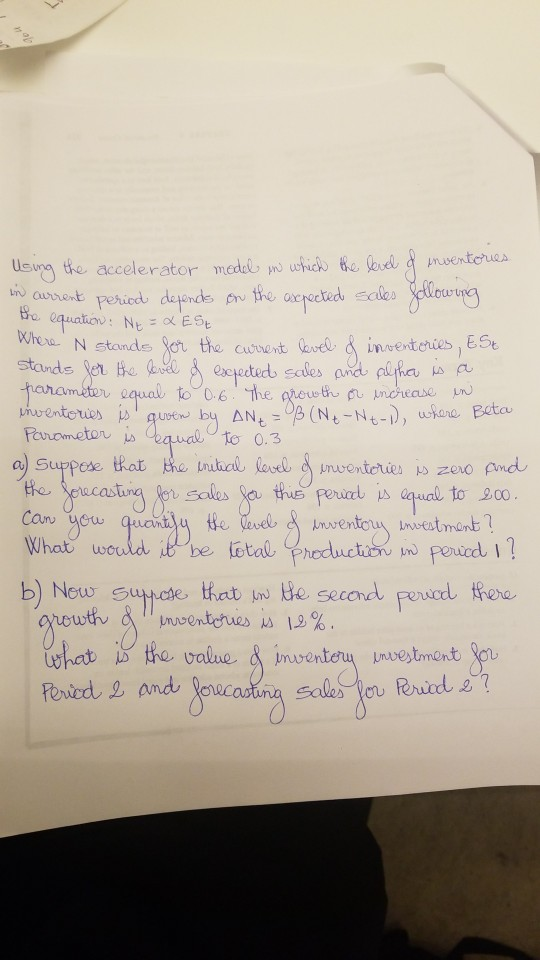 Using the accelerator model in which the level of inventories
in current period depends on the expected sales following
the equation: Nt = α ESt
Where N stands for the current level of inventories, ESt
stands for the level of expected sales and alpha is a
parameter equal to 0.6. The growth or increase in
inventories is given by ΔNt = β (Nt - Nt-1), where Beta
Parameter is equal to 0.3
a) Suppose that the initial level of inventories is zero and
the forecasting for sales for this period is equal to 200.
Can you quantify the level of inventory investment?
What would it be total production in period 1?
b) Now suppose that in the second period there
growth of inventories is 12%.
What is the value of inventory investment for
Period 2 and forecasting sales for Period 2?